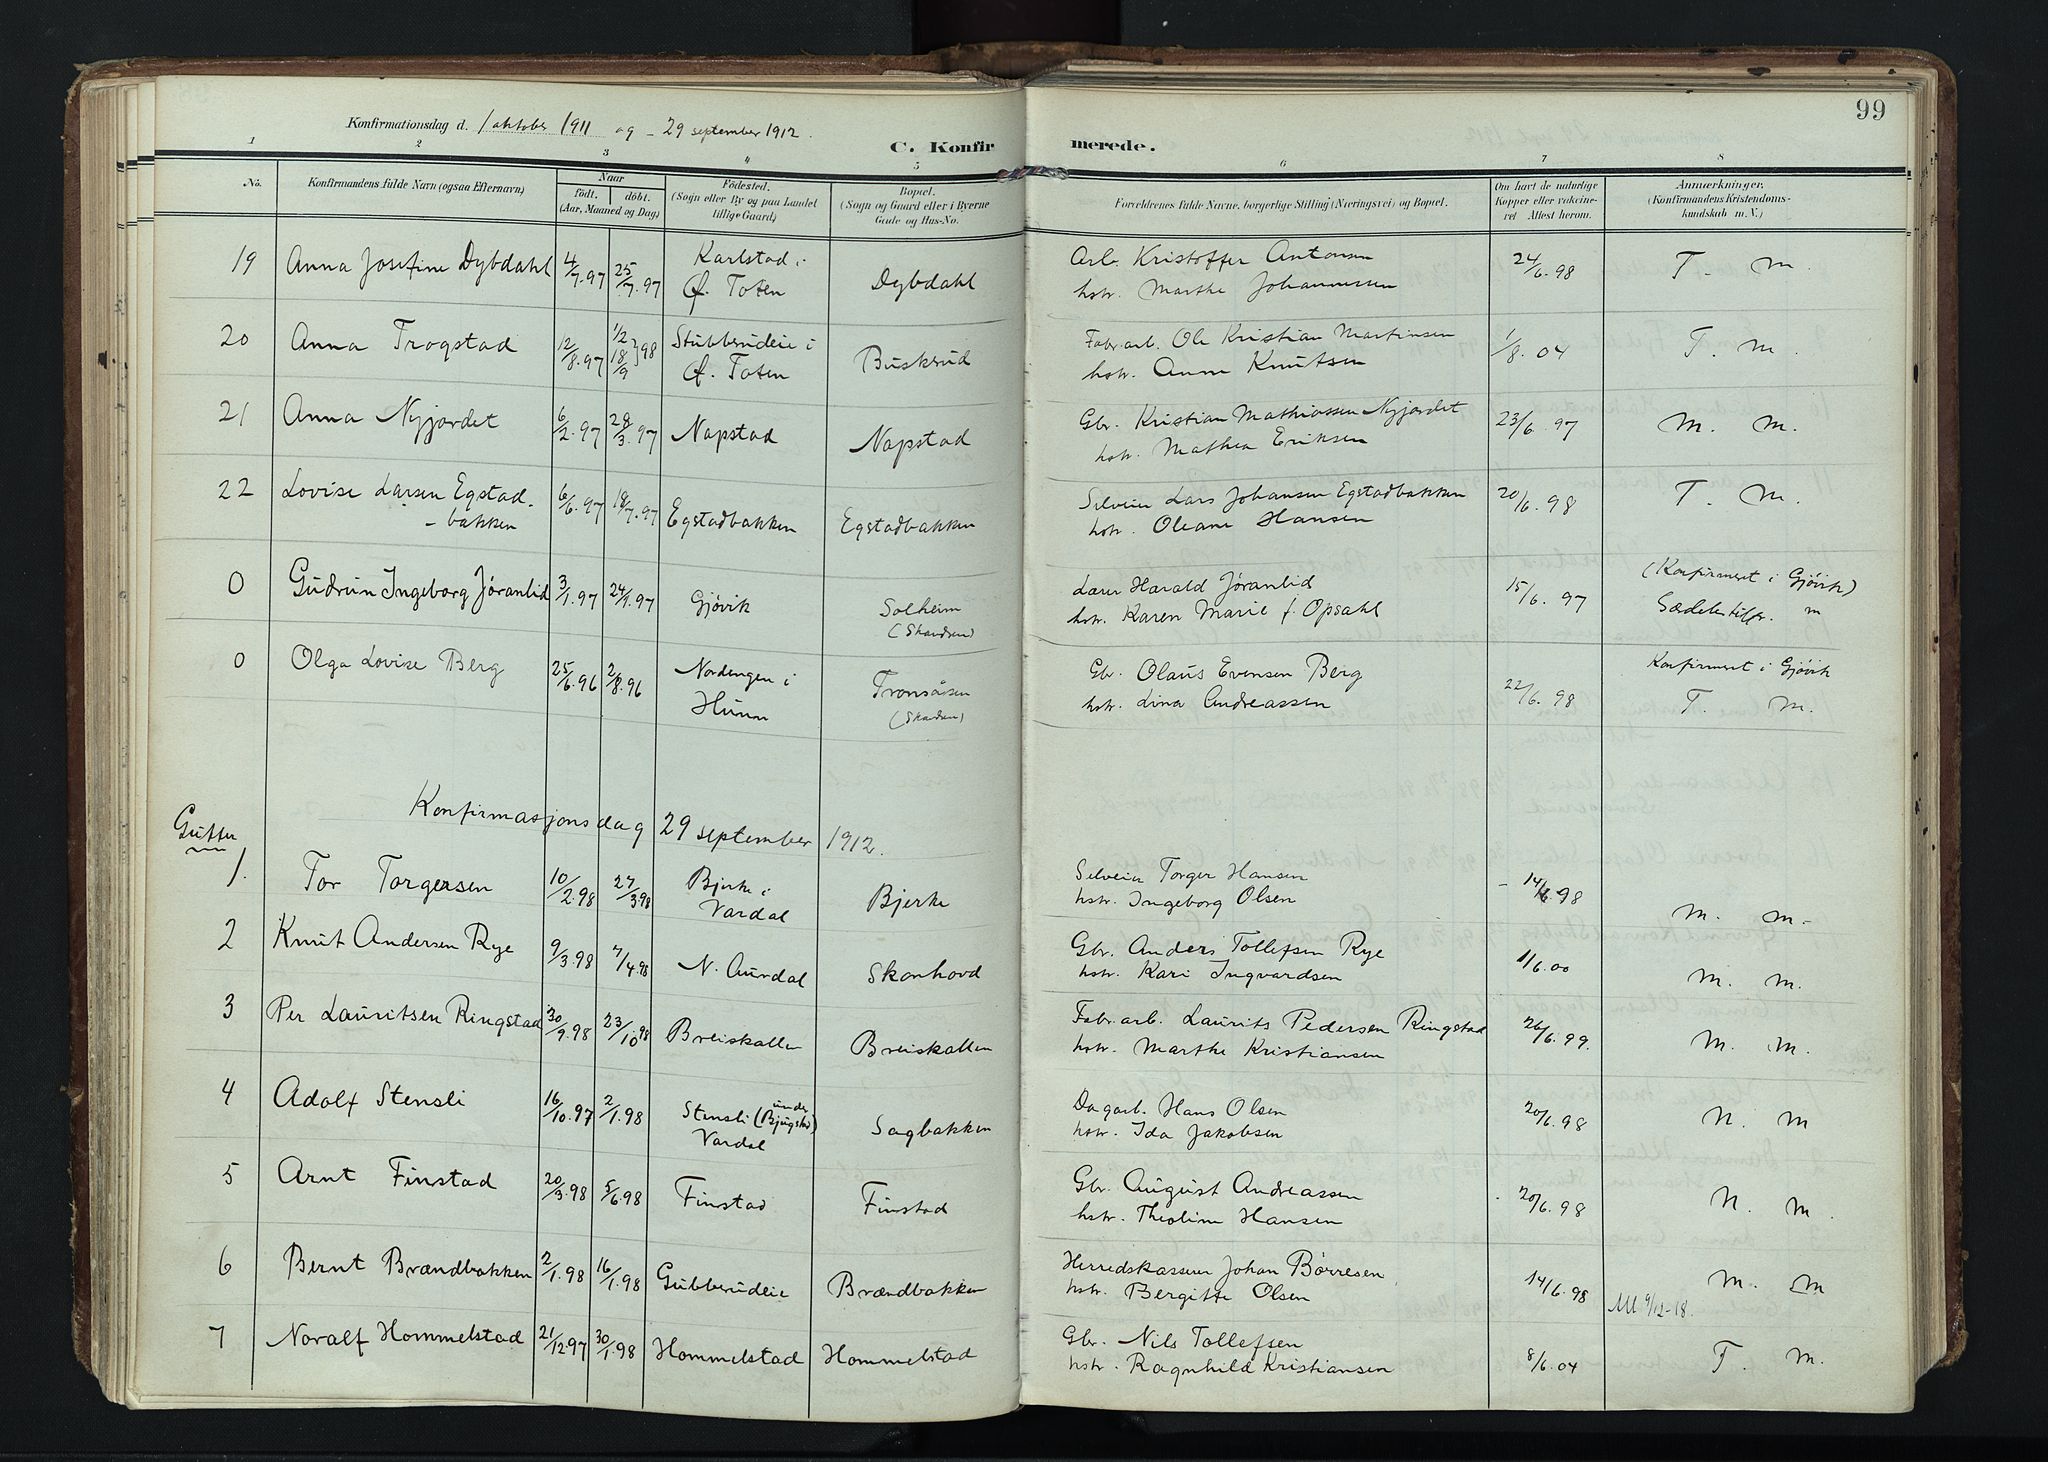 99
Konfirmationsdag d. 1 oktober 1911 og - 29 september 1912.
C. Konfirmerede.
1 2 3 4 5 6 7 8
No. Konfirmandens fulde Navn (ogsaa Efternavn) Naar födt. döbt. (Aar, Maaned og Dag) Födested. (Sogn eller By og paa Landet tillige Gaard) Bopæl. (Sogn og Gaard eller i Byerne Gade og Hus-No. Forældrenes fulde Navne, borgerlige Stilling (Næringsvei) og Bopæl. Om havt de naturlige Kopper eller vakcineret Attest herom. Anmærkninger. (Konfirmandens Kristendomskundskab m. V.)
19 Anna Josefine Dybdahl 4/7.97 25/7.97 Karlstad i Ø. Toten Dybdahl Arb. Kristoffer Antonsen 24/6.98 T. M.
hstr. Marthe Johannessen
20 Anna Trogstad 12/8.97 1/2 18/9 } 98 Stubberudeie i Ø. Toten Buskerud Fabr.arb. Ole Kristian Martinsen 1/8.04 T. M.
hstr. Anne Knutsen
21 Anna Nyjordet 6/2.97 28/3.97 Napstad Napstad Gbr. Kristian Mathiassen Nyjordet 23/6.97 M. M.
hstr. Mathea Eriksen
22 Lovise Larsen Egstad- 6/6.97 18/7.97 Egstadbakken Egstadbakken Selveier Lars Johansen Egstadbakken 20/6.98 T. M.
-bakken hstr. Oleane Hansen
0 Gudrun Ingeborg Jøranlid 3/1.97 24/1.97 Gjøvik Solheim Lærer Harald Jøranlid 15/6.97 (Konfirmeret i Gjøvik)
(Skardsen) hstr. Karen Marie f. Opsahl m
0 Olga Lovise Berg 25/6.96 2/8.96 Nordengen i Hunn Tronsåsen Gbr. Olaus Evensen Berg 22/6.98 Konfirmeret i Gjøvik
hstr. Lina Andreassen T. M.
Konfirmasjonsdag 29 september 1912.
Gutter
1. Tor Torgersen 10/2.98 27/3.98 Bjerke i Vardal Bjerke Selveier Torger Hansen - 14/6.98 M. M.
hstr. Ingeborg Olsen
2 Knut Andersen Rye 9/3.98 7/4.98 N. Aurdal Skonhovd Gbr. Anders Tollefsen Rye 1/6.00 M. M.
hstr. Kari Ingvardsen
3 Per Lauritsen Ringstad 30/9.98 23/10.98 Breiskallen Breiskallen Fabr.arb. Laurits Pedersen Ringstad 26/6.99. M. M.
hstr. Marthe Kristiansen
4 Adolf Stensli 16/10.97 2/1.98 Stensli (under Bjugstad) Vardal Sagbakken Dagarb. Hans Olsen 20/6.98 N. M
hstr. Ida Jakobsen
5 Arnt Finstad 20/3.98 5/6.98 Finstad Finstad Gbr. August Andreassen 20/6.98 N. M.
hstr. Theoline Hansen
6 Bernt Brændbakken 2/1.98 16/1.98 Gubberudeie Brændbakken Herredskasserer Johan Børresen 14/6.98 M. M
hstr. Bergitte Olsen 9/12-18.
7 Noralf Hommelstad 21/12.97 30/1.98 Hommelstad Hommelstad Gbr. Nils Tollefsen 8/6.04 T. M.
hstr. Ragnhild Kristiansen